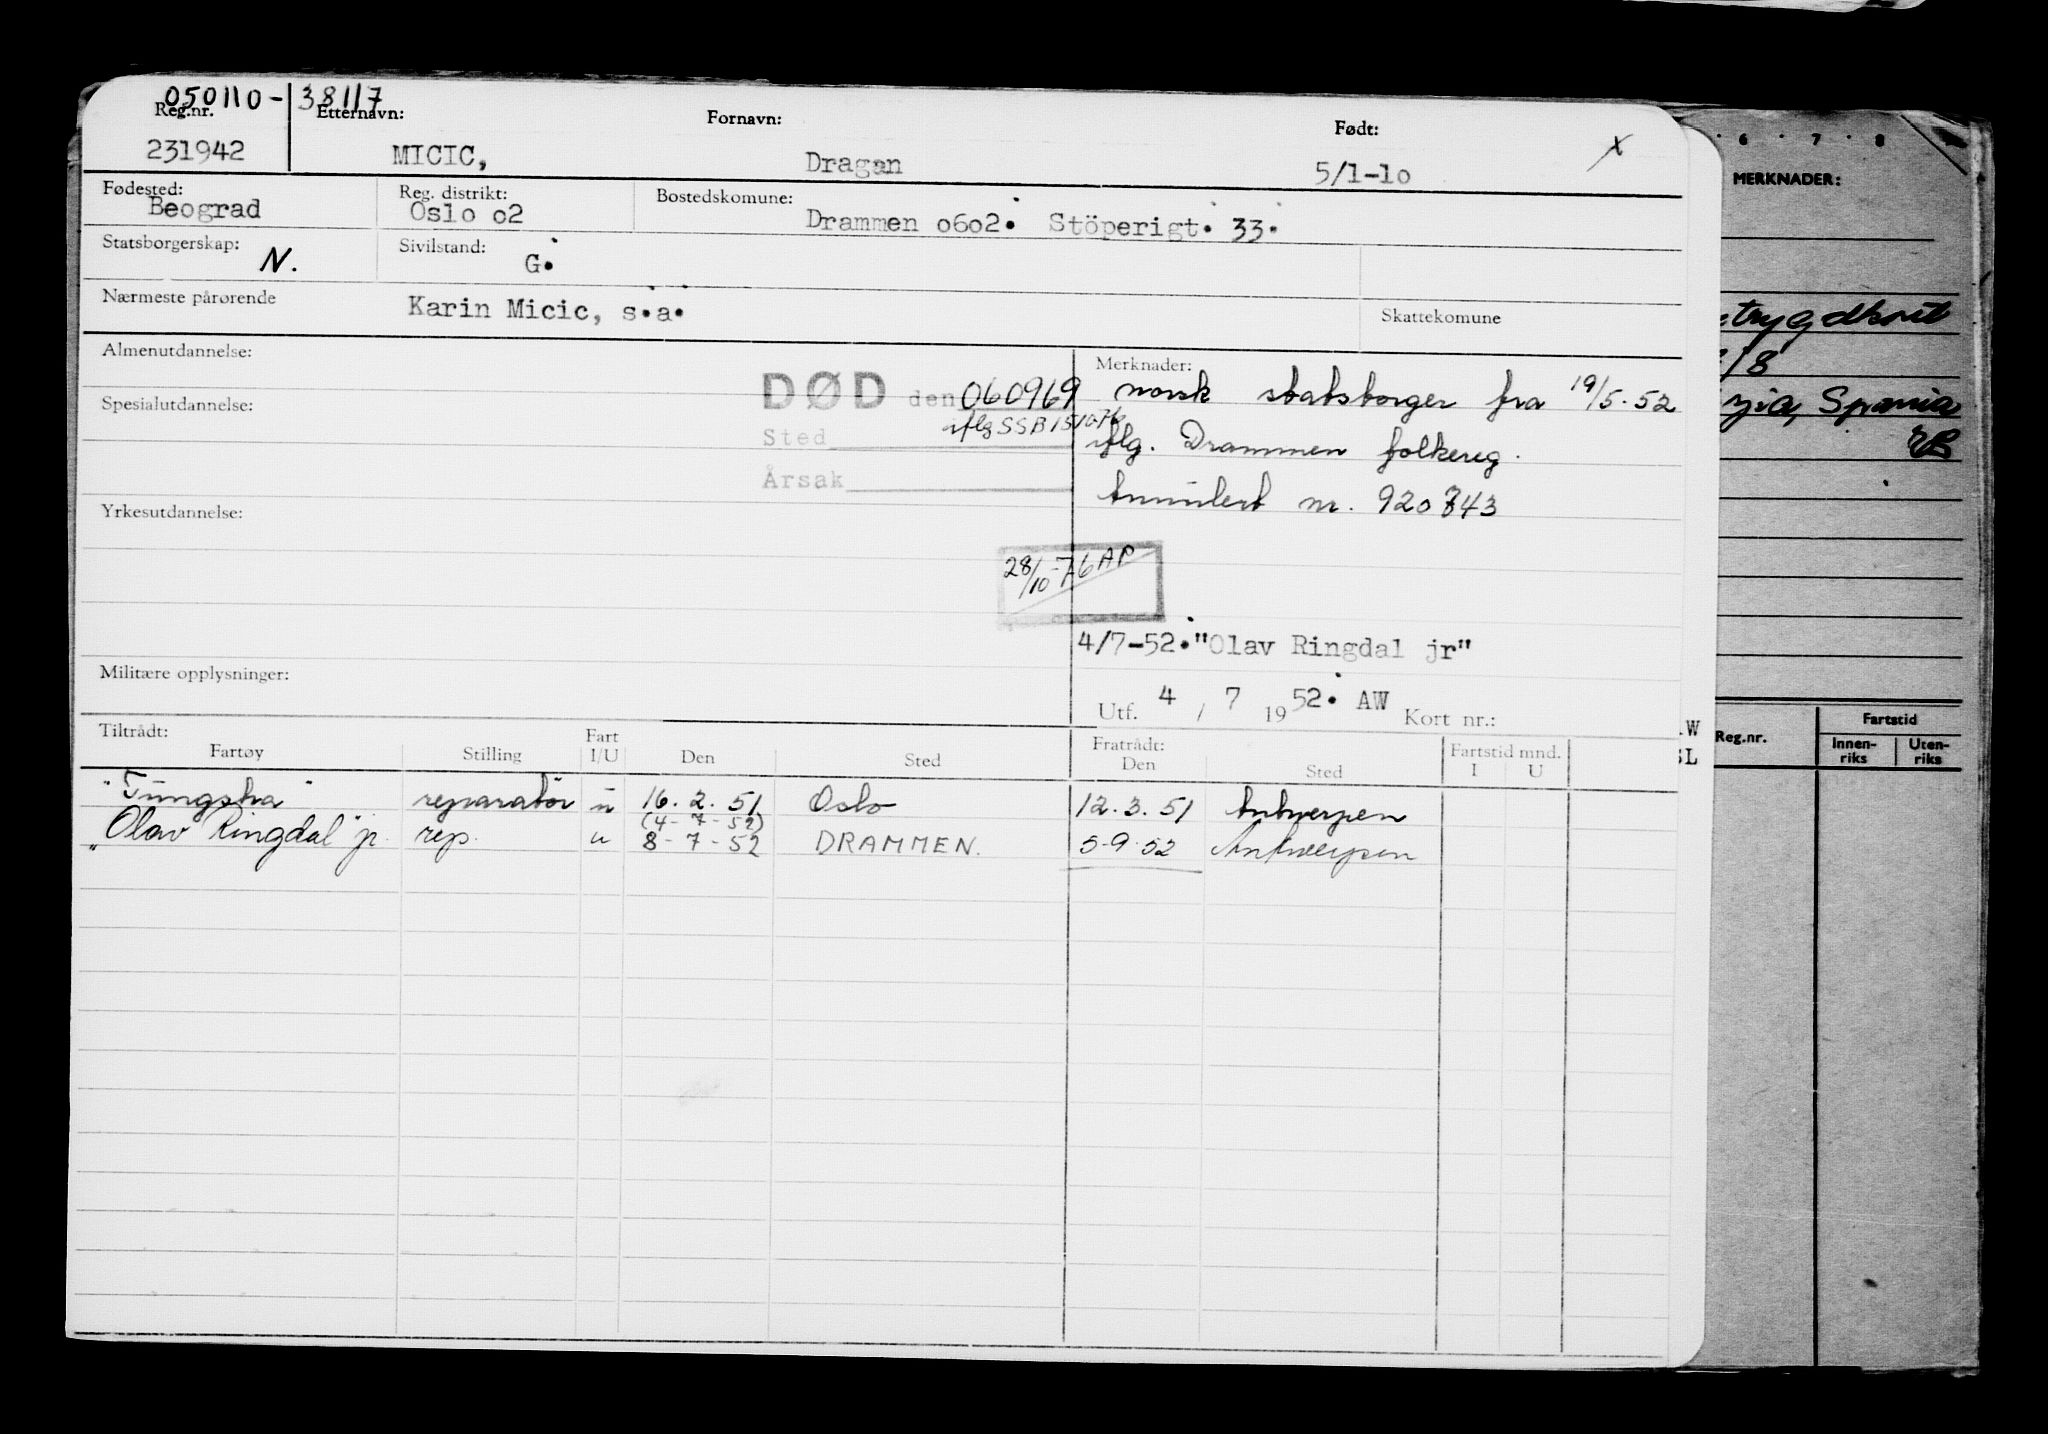 050110-38117
Reg.nr. Etternavn: Fornavn: Født:
231942 MICIC, Dragan 5/1-1o x
Fødested: Reg. distrikt: Bostedskomune:
Beograd Oslo o2 Drammen o6o2. Stöperigt. 33.
Statsborgerskap: Sivilstand:
N. G.
Nærmeste pårørende Karin Micic, s.a. Skattekomune
Almenutdannelse: Merknader:
DØD den 060969 norsk statsborger fra 19/5.52
Spesialutdannelse:
iflg SSB
Sted iflg. Drammen folkereg.
Årsak
Annulert nr. 920843
Yrkesutdannelse:
28/10-76 AP
4/7-52."Olav Ringdal jr"
Militære opplysninger:
Utf. 4 / 7 1952. AW Kort nr.:
Tiltrådt: Fart Fratrådt: Fartstid mnd.
Fartøy Stilling I/U Den Sted Den Sted I U
"Tungsha" reparatør u 16.2.51 Oslo 12.3.51 Antwerpen
(4-7-52)
"Olav Ringdal" jr. rep. u 8-7-52 DRAMMEN. 5-9-52 Antwerpen
6 7 8
MERKNADER:
/8
Spania
Reg.nr. Fartstid
Innen-riks Uten-riks